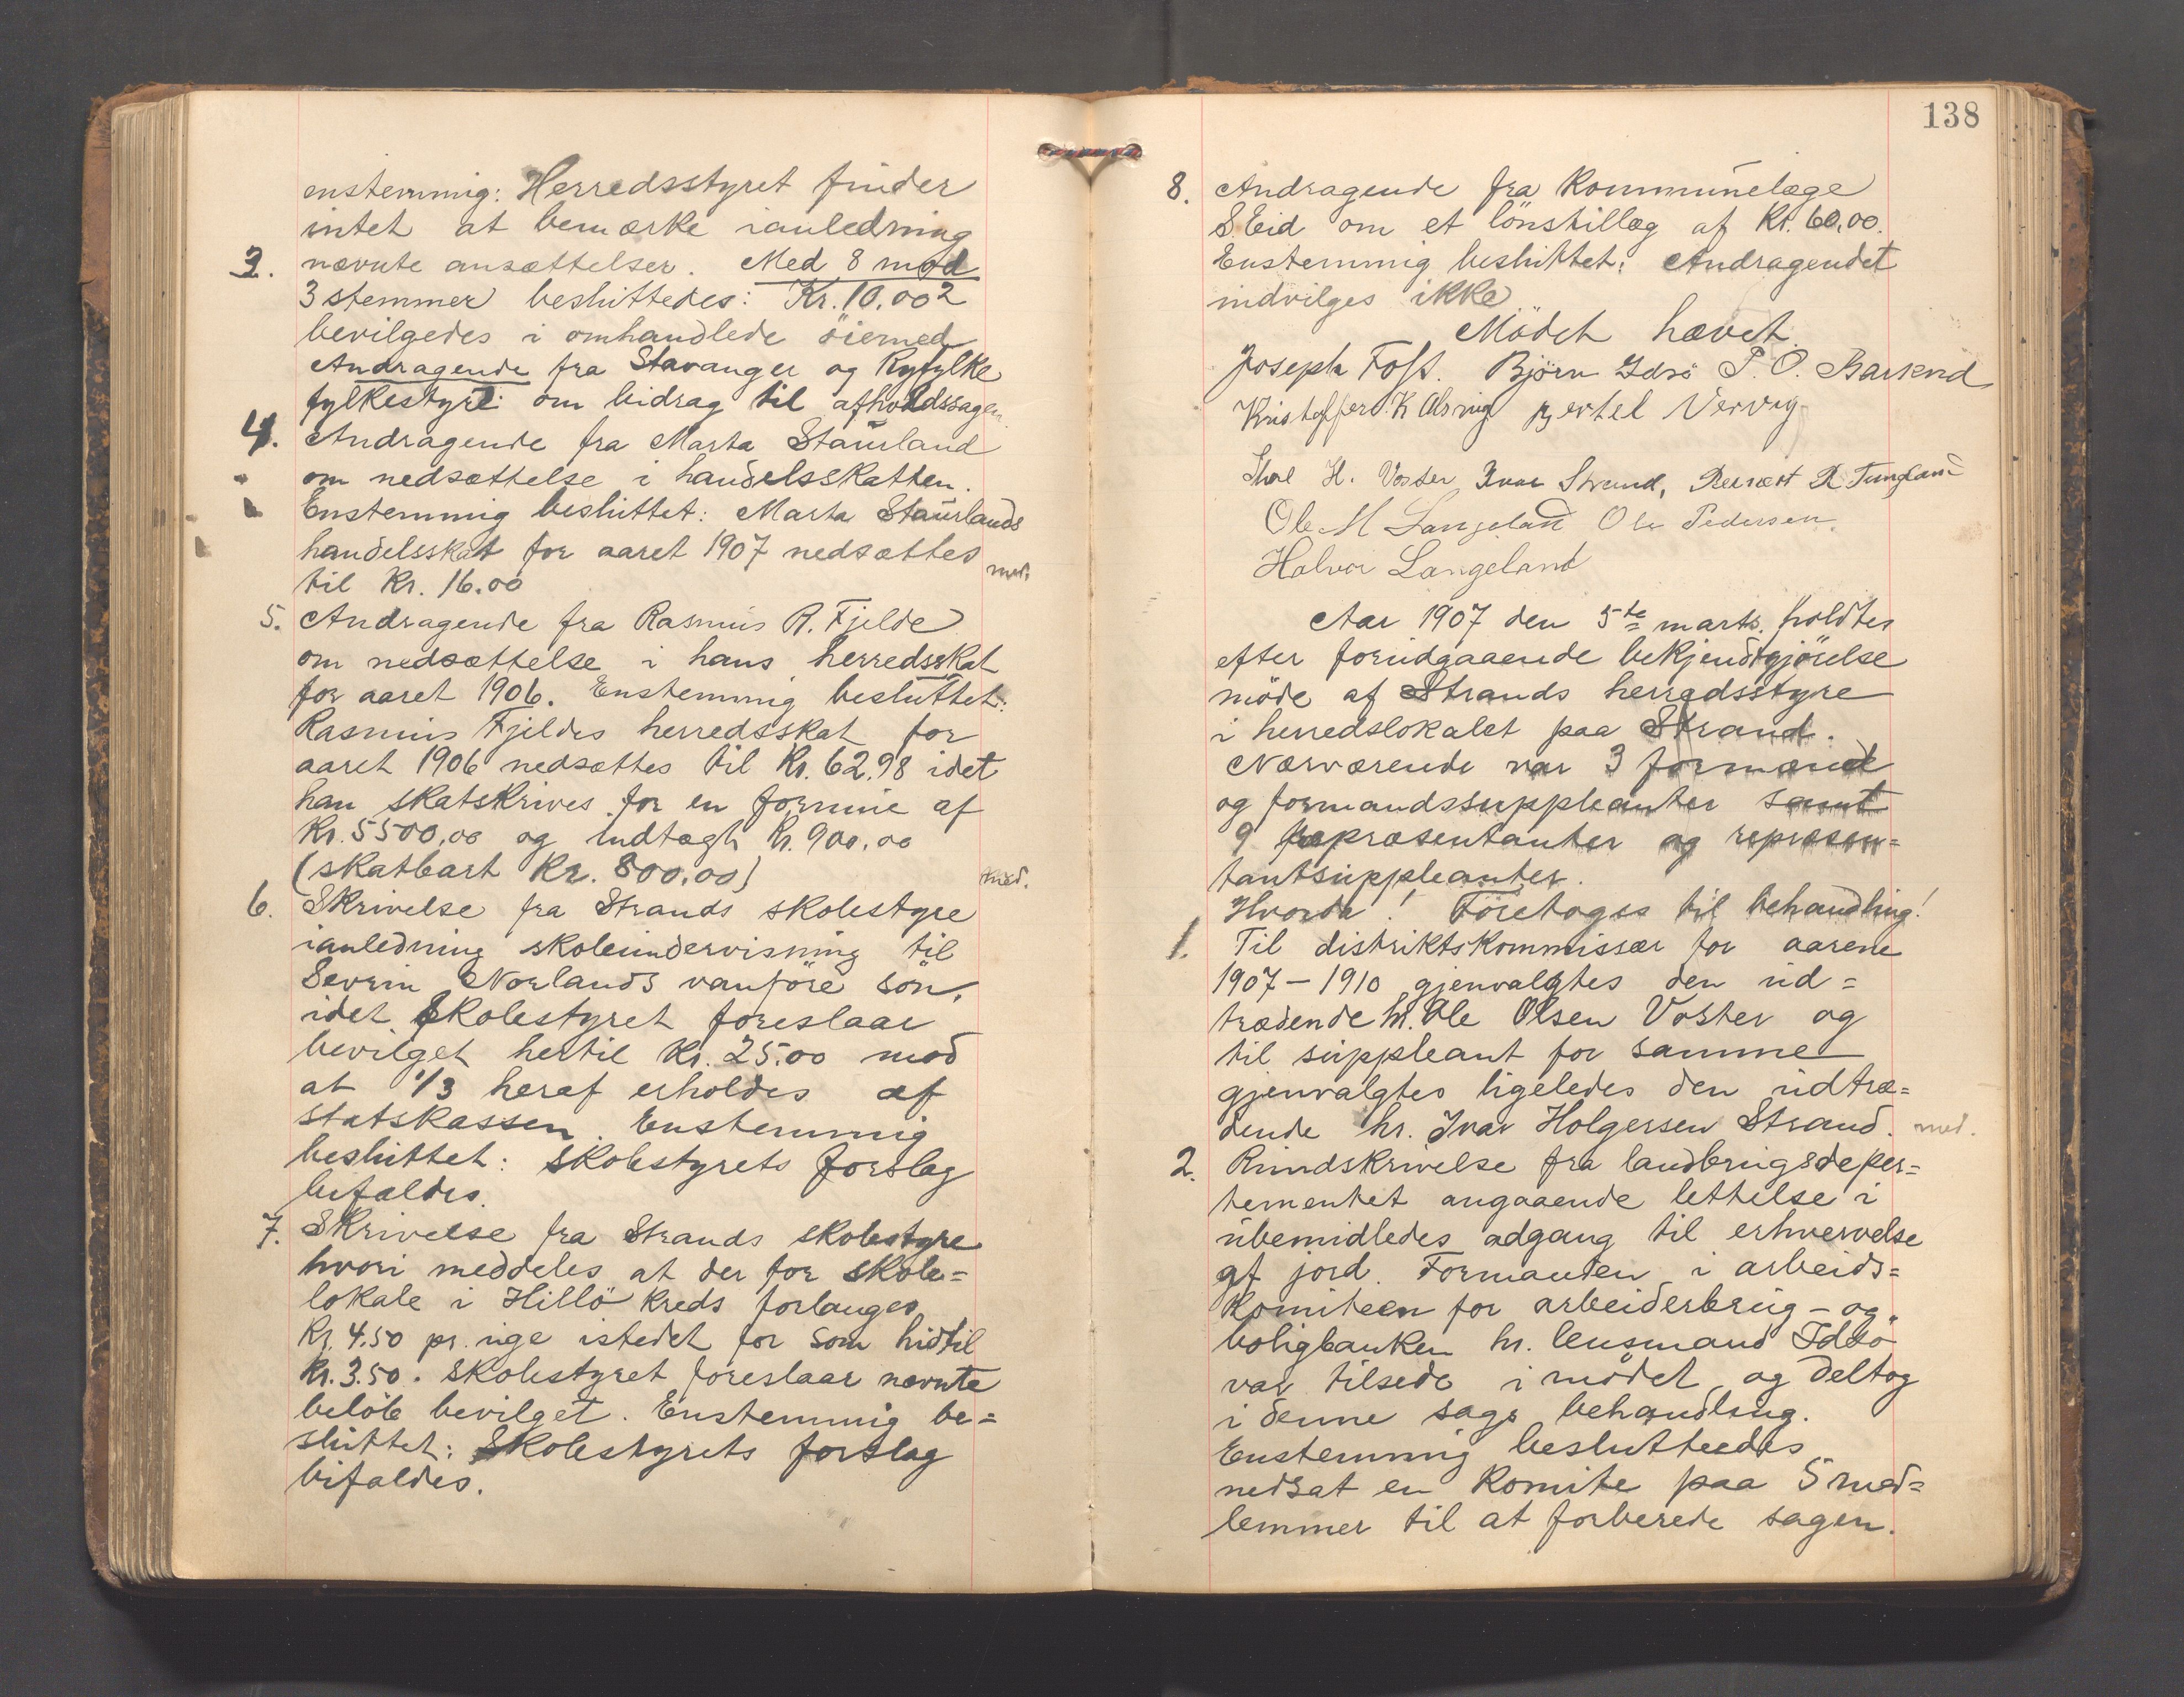 enstemmig: Herredsstyret finder
intet at bemærke ianledning
3. nævnte ansættelser. Med 8 mod
3 stemmer besluttedes: Kr. 10.00 2
bevilgedes i omhandlede öiemed
Andragende fra Stavanger og Ryfylke
fylkestyre om bidrag til afholdssagen.
4. Andragende fra Marta Staurland
om nedsættelse i handelsskatten.
Enstemmig besluttet: Marta Staurlands
handelsskat for aaret 1907 nedsættes
til Kr. 16.00 med.
5. Andragende fra Rasmus R. Fjelde
om nedsættelse i hans herredsskat
for aaret 1906. Enstemmig besluttet:
Rasmus Fjeldes herredsskat for
aaret 1906 nedsættes til Kr. 62.98 idet
han skatskrives for en formue af
Kr. 5500,00 og indtægt Kr. 900.00
(skatbart Kr. 800.00) med.
6. Skrivelse fra Strands skolestyre
ianledning skoleundervisning til
Sevrin Norlands vanföre sön,
idet Skolestyret foreslaar
bevilget hertil Kr. 25.00 mod
at 1/3 heraf erholdes af
statskassen. Enstemmig
besluttet: Skolestyrets forslag
bifaldes.
7. Skrivelse fra Strands skolestyre
hvori meddeles at der for skole=
lokale i Hillö kreds forlanges
Kr. 4.50 pr. uge istedet for som hidtil
Kr. 3.50. Skolestyret foreslaar nævnte
belöb bevilget. Enstemmig be=
sluttet: Skolestyrets forslag
bifaldes.
138
8. Andragende fra Kommunelæge
S. Eid om et lönstillæg af Kr. 60,00.
Enstemmig besluttet: Andragendet
indvilges ikke
Mödet hævet.
Joseph Foss. Björn Idsö P. O. Barkved
Kristoffer K Alsvig Bertel Vervig
H. Voster Ivar Strand, R Tungland
Ole M Langeland Ole Pedersen.
Halvor Langeland
Aar 1907 den 5te marts. holdtes
efter forudgaaende bekjendtgjörelse
möde af Strands herredsstyre
i herredslokalet paa Strand.
Nærværende var 3 formænd
og formandssuppleanter samt
9 repræsentanter og repræsen=
tantsuppleanter.
Hvorda! Foretoges til behandling!
1. Til distriktskommissær for aarene
1907 – 1910 gjenvalgtes den ud=
trædende hr. Ole Olsen Voster og
til suppleant for samme
gjenvalgtes ligeledes den udtræ=
dende hr. Ivar Holgersen Strand. med.
2. Rundskrivelse fra landbrugsdepar=
tementet angaaende lettelse i
ubemidledes adgang til erhvervelse
af jord. Formanden i arbeids=
komiteen for arbeiderbrug- og
boligbanken hr. lensmand Idsö
var tilstede i mödet og deltog
i denne sags behandling.
Enstemmig besluttedes
nedsat en komite paa 5 med=
lemmer til at forberede sagen.